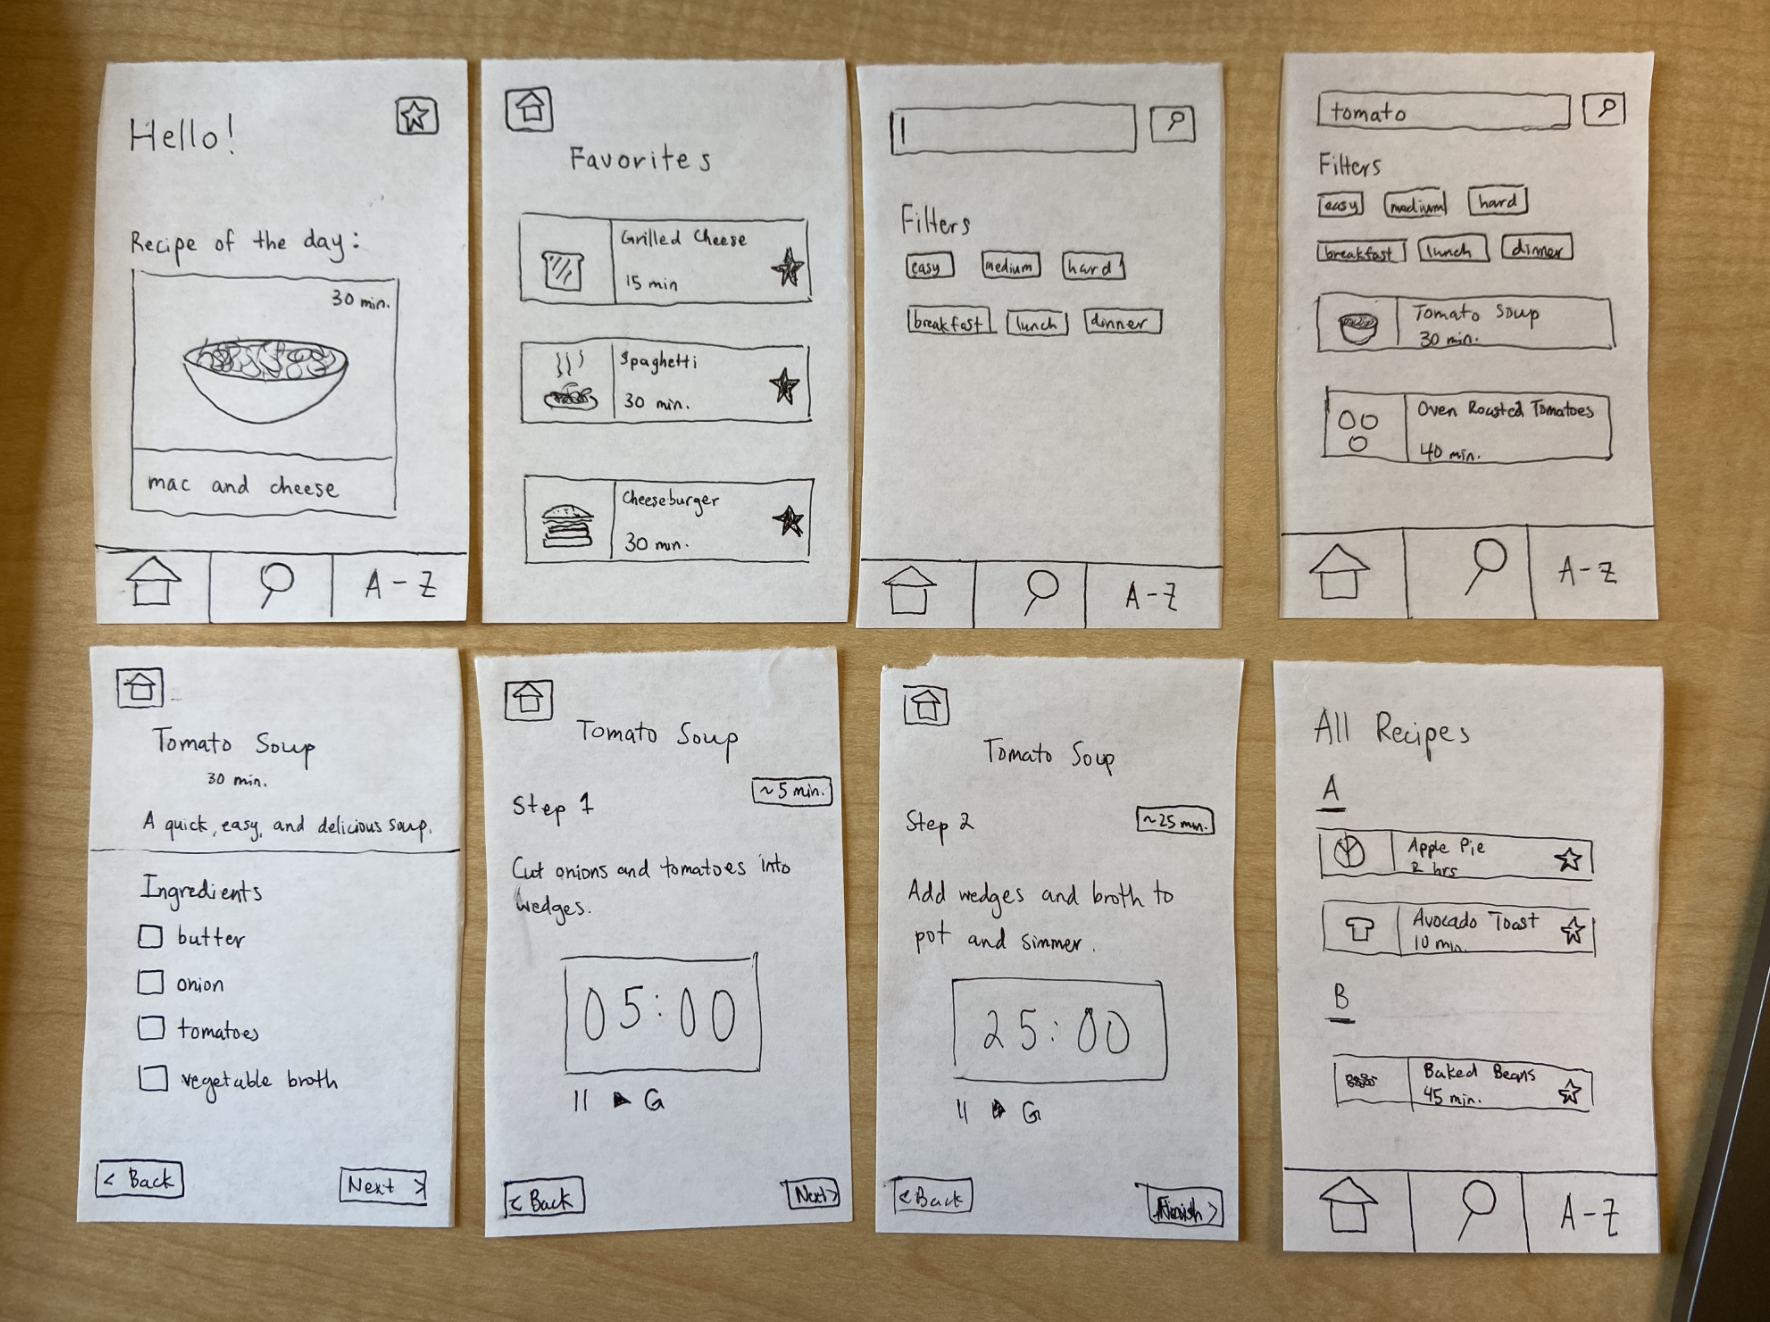 Hello!
Recipe of the day:
30 min.
mac and cheese
A-Z
Favorites
Grilled Cheese
15 min
Spaghetti
30 min.
Cheeseburger
30 min.
Filters
easy medium hard
breakfast lunch dinner
A-Z
tomato
Filters
easy medium hard
breakfast lunch dinner
Tomato Soup
30 min.
Oven Roasted Tomatoes
40 min.
A-Z
Tomato Soup
30 min.
A quick, easy, and delicious soup.
Ingredients
butter
onion
tomatoes
vegetable broth
< Back Next >
Tomato Soup
~5 min.
Step 1
Cut onions and tomatoes into
wedges.
05:00
< Back Next >
Tomato Soup
Step 2 ~25 min.
Add wedges and broth to
pot and simmer.
25:00
< Back Finish >
All Recipes
A
Apple Pie
2 hrs
Avocado Toast
10 min.
B
Baked Beans
45 min.
A-Z